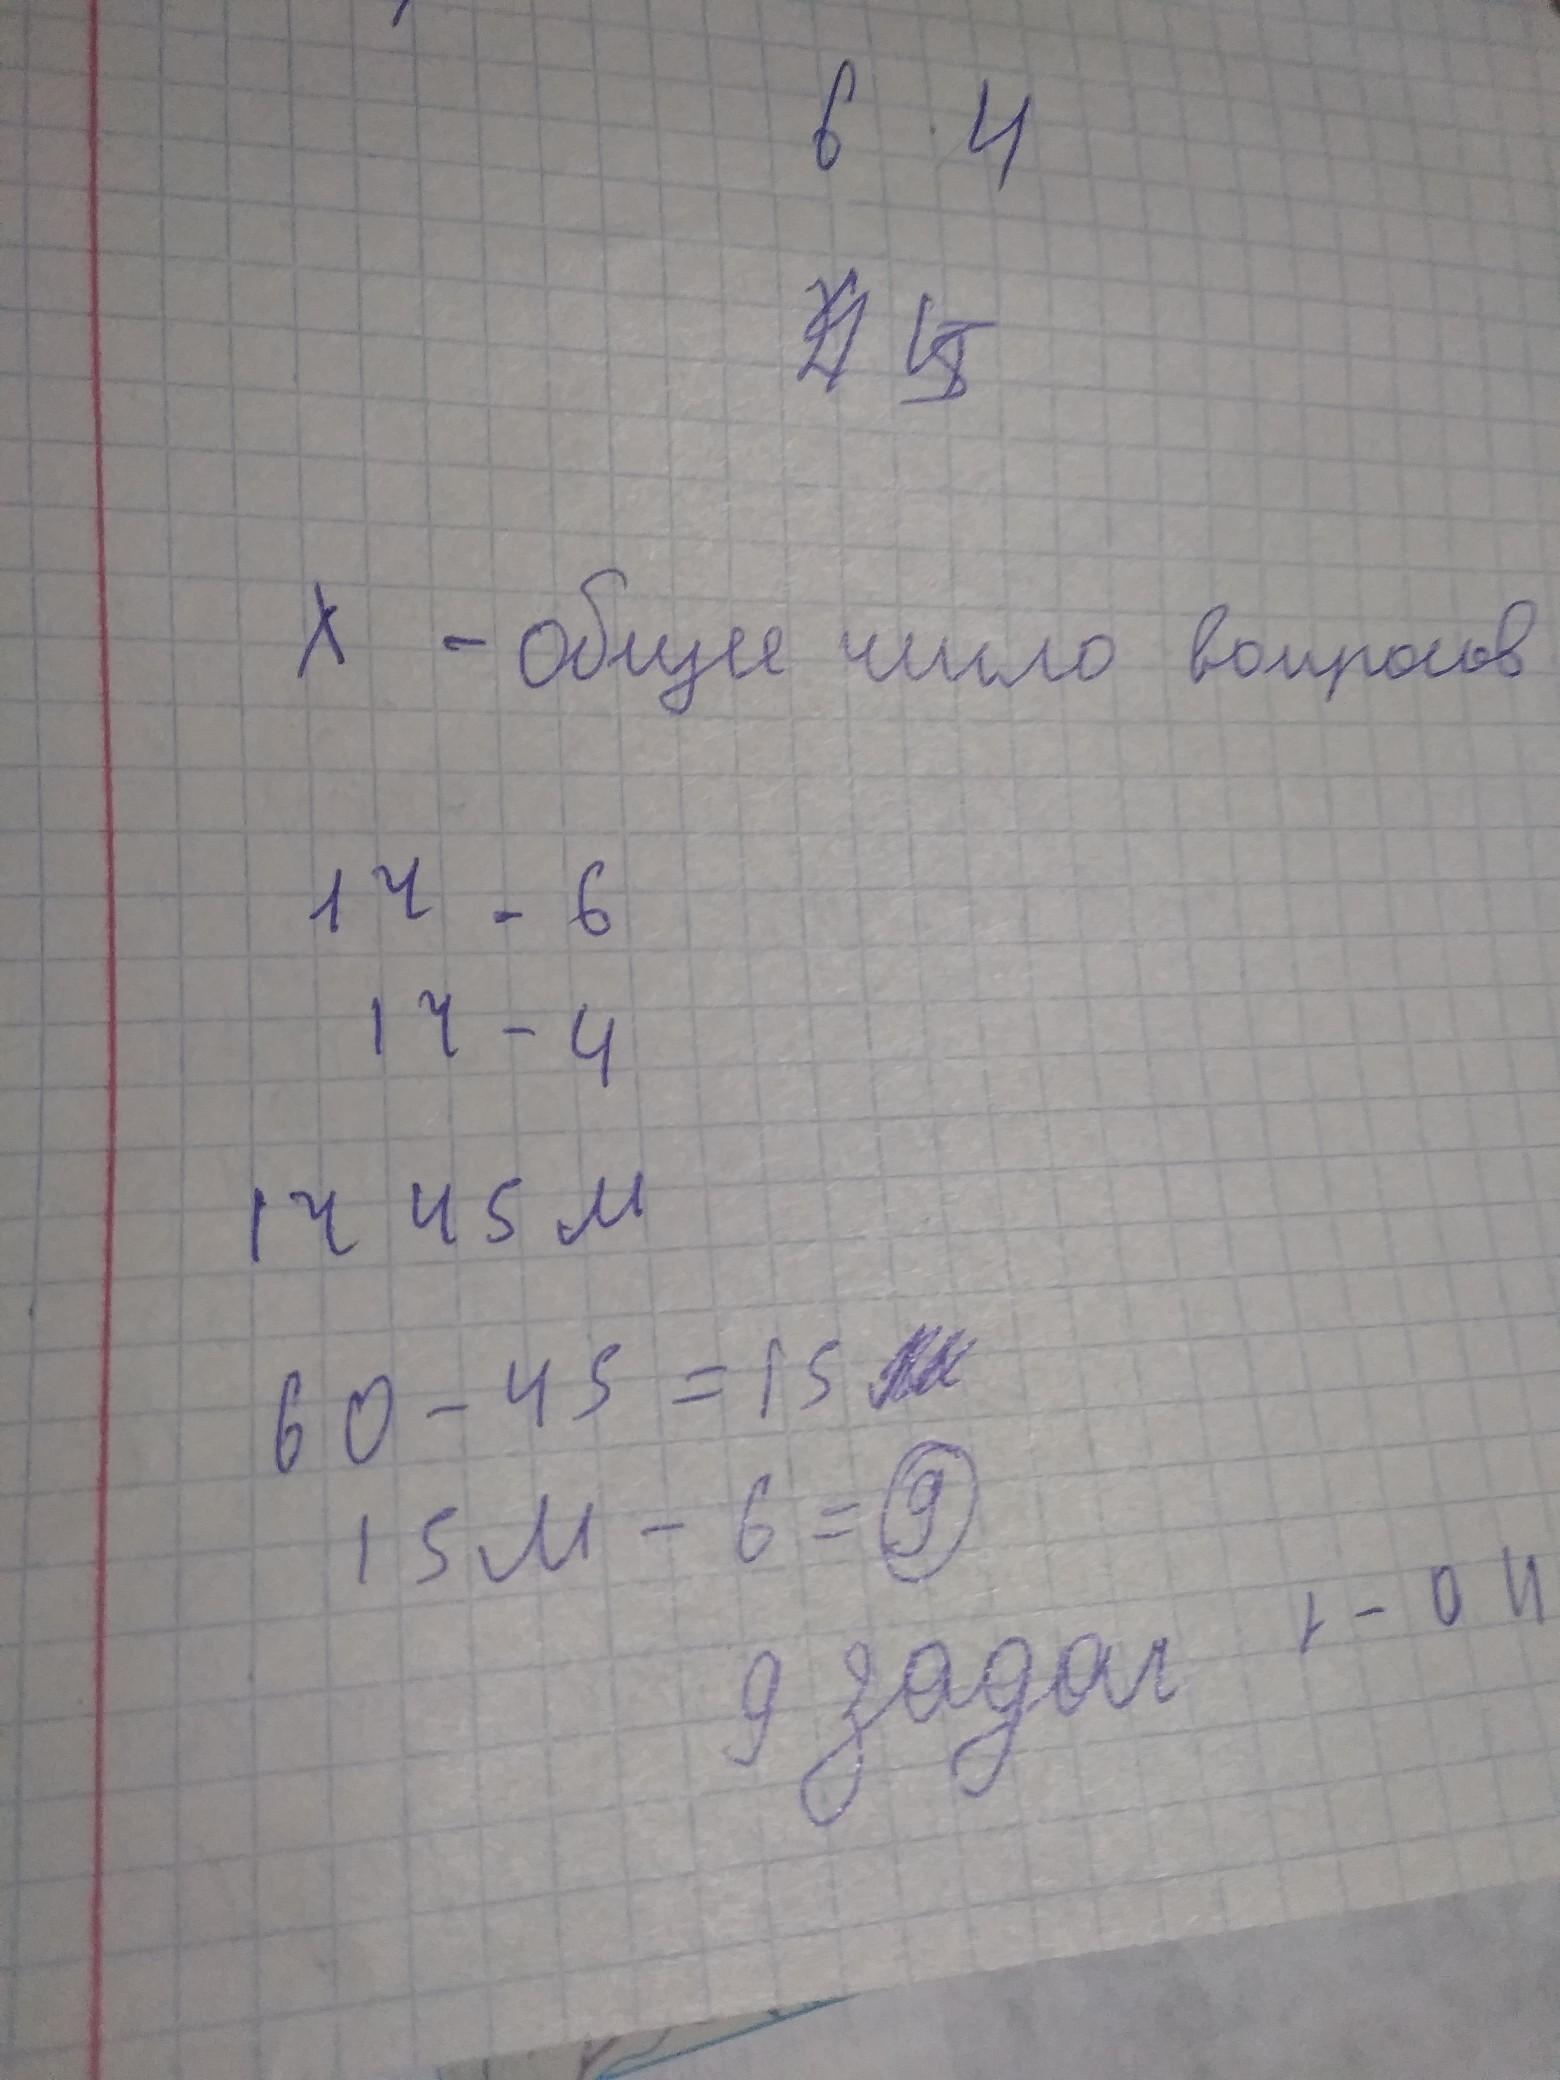 6 4
X - общее число вопросов
1ч - 6
1ч - 4
1ч 45м
60 - 45 = 15
15м - 6 = 9
9 задач